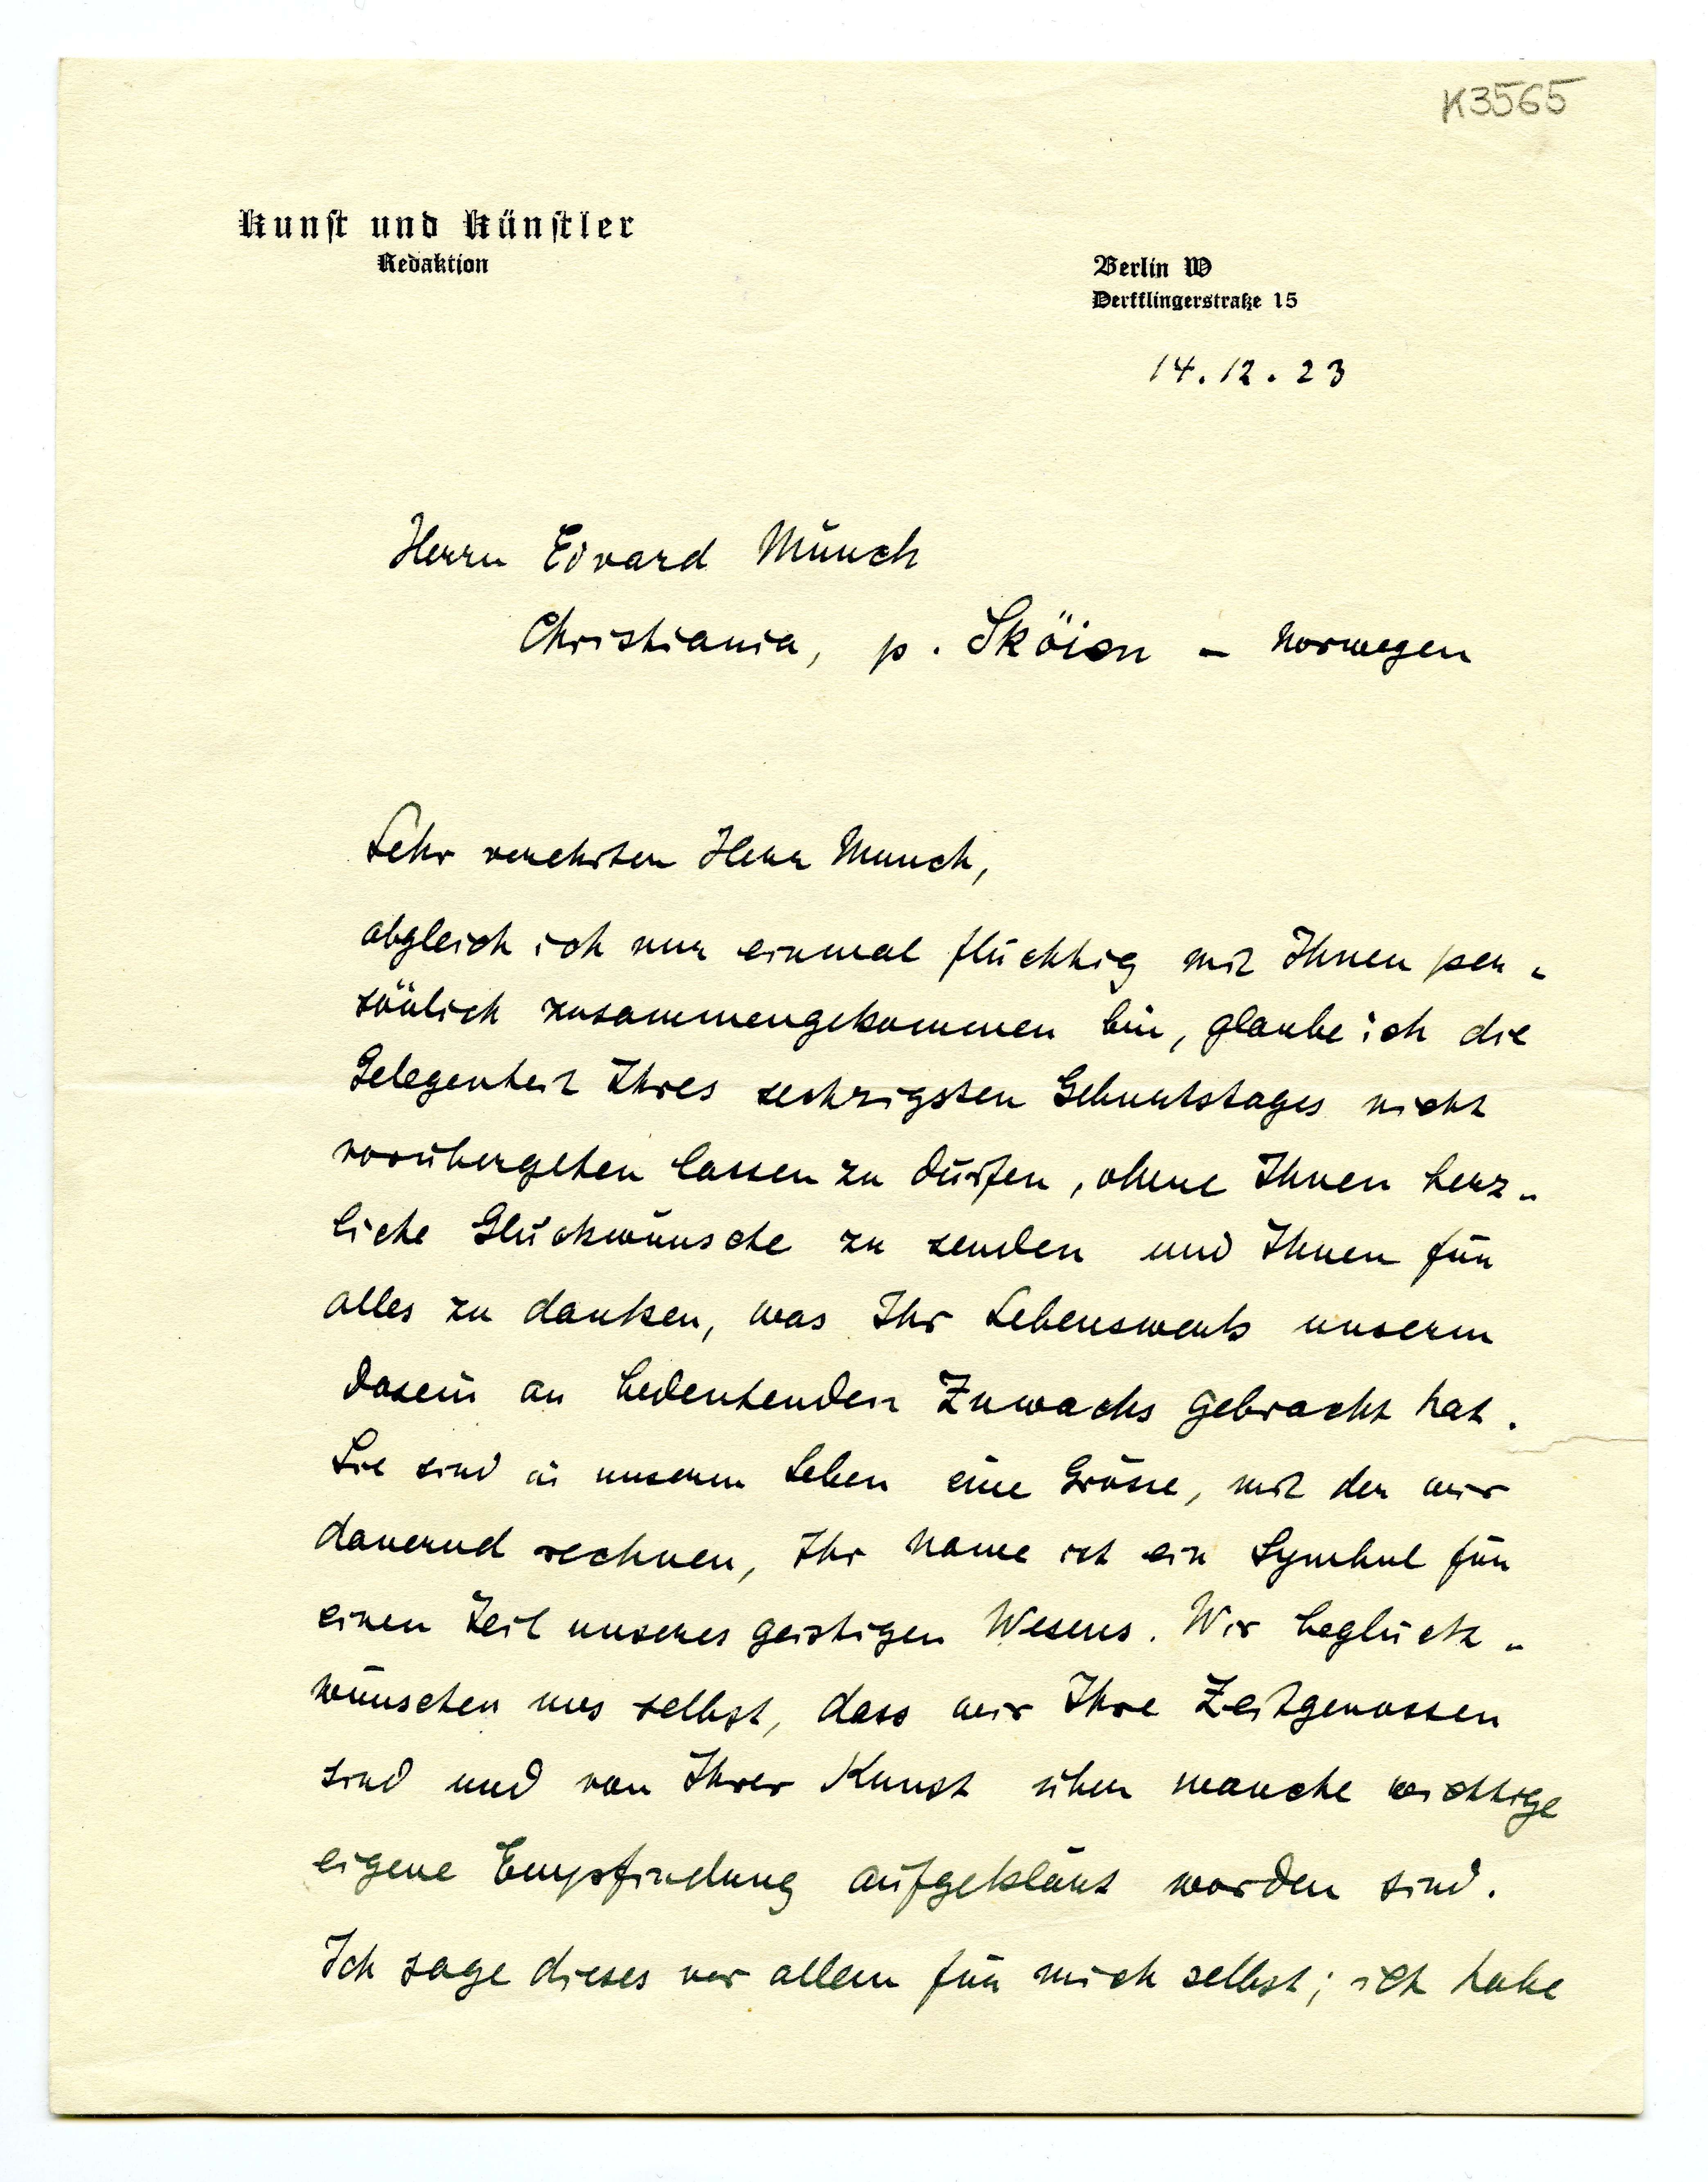 K3565
Kunst und Künstler
Redaktion
Berlin W
Derfflingerstraße 15
14.12.23
Herrn Edvard Munch
Christiania, p. Sköien – Norwegen
Sehr verehrter Herr Munch,
obgleich ich nur einmal flüchtig mit Ihnen per-
sönlich zusammengekommen bin, glaube ich die
Gelegenheit Ihres sechzigsten Geburtstages nicht
vorübergehen lassen zu dürfen, ohne Ihnen herz-
liche Glückwünsche zu senden und Ihnen für
alles zu danken, was Ihr Lebenswerk unserm
Dasein an bedeutenden Zuwachs gebracht hat.
Sie sind in unserm Leben eine Grösse, mit der wir
dauernd rechnen, Ihr Name ist ein Symbol für
einen Teil unseres geistigen Wesens. Wir beglück-
wünschen uns selbst, dass wir Ihre Zeitgenossen
sind und von Ihrer Kunst über manche wichtige
eigene Empfindung aufgeklärt worden sind.
Ich sage dieses vor allem für mich selbst; ich habe